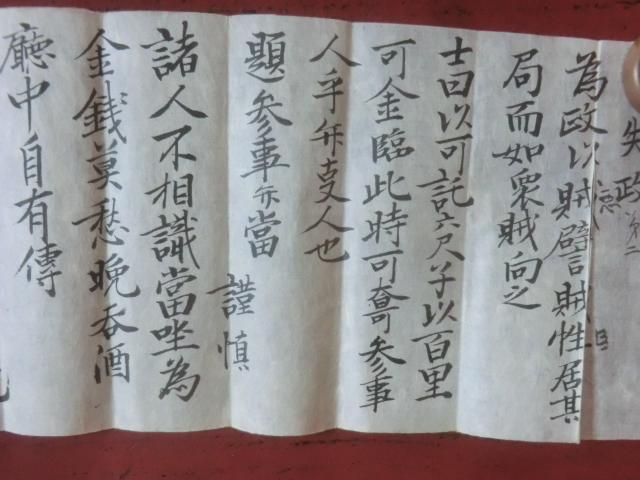 失政
為政以賊譬賊性居其
局而如衆賊向之
士曰以可託六尺子以百里
可金臨此時可奇参事
人乎弁支人也
題参事弁當
謹慎
諸人不相識當坐為
金錢莫愁晩呑酒
廳中自有傳